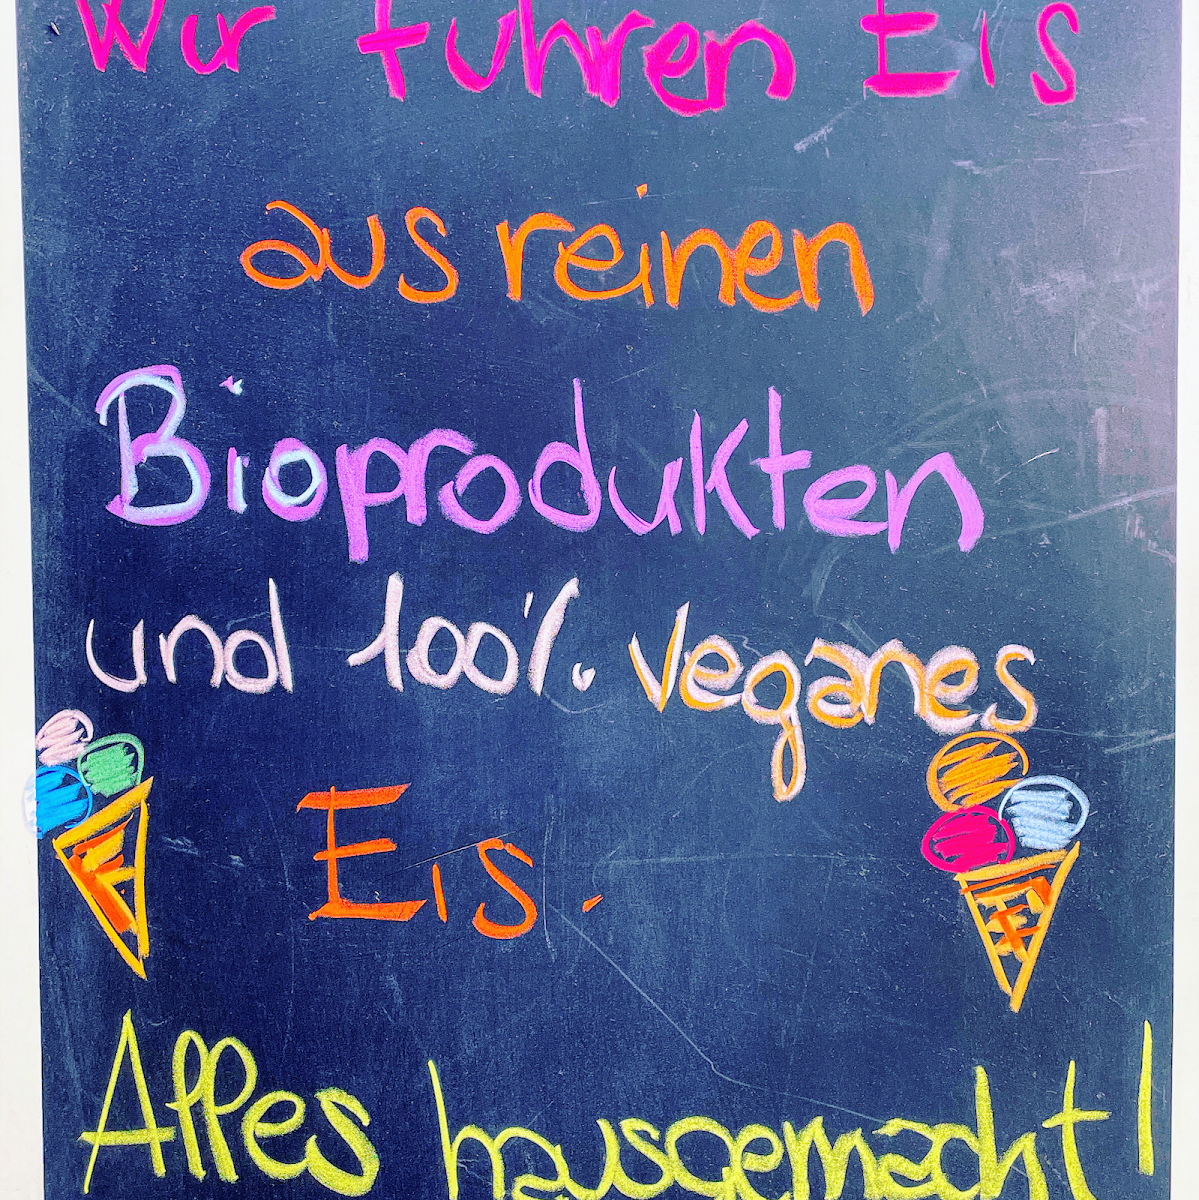 Wir führen Eis
aus reinen
Bioprodukten
und 100%. veganes
Eis.
Alles hausgemacht!